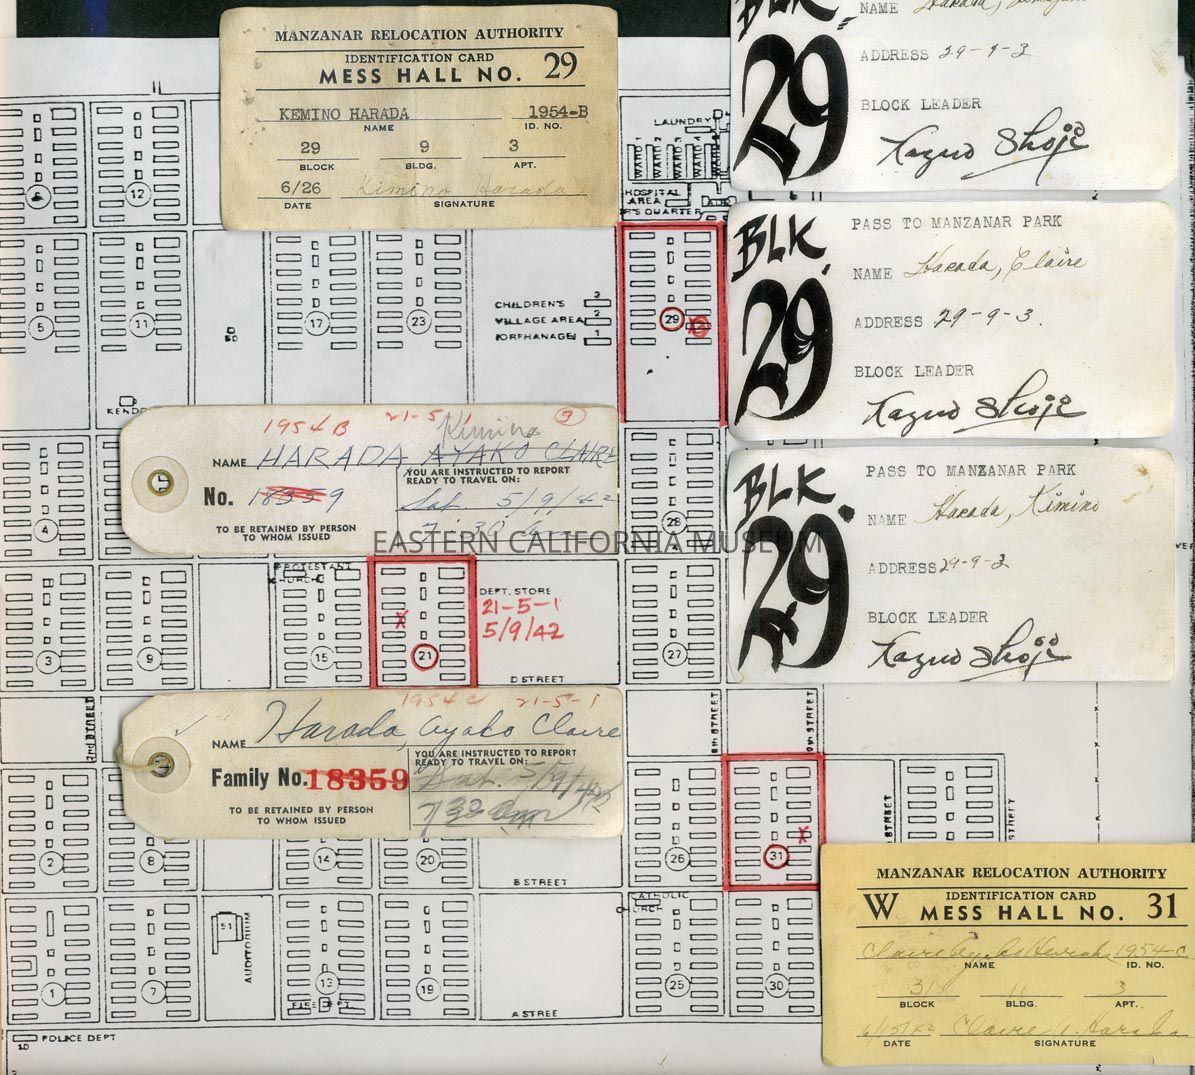 MANZANAR RELOCATION AUTHORITY
IDENTIFICATION CARD
MESS HALL NO. 29
KEMINO HARADA 1954-B
NAME ID. NO.
29 9 3
BLOCK BLDG. APT.
6/26 Kimino Harada
DATE SIGNATURE
BLK 29
NAME Harada,
ADDRESS 29-9-3
BLOCK LEADER
Kazuo Shoji
BLK. 29
PASS TO MANZANAR PARK
NAME Harada, Claire
ADDRESS 29-9-3.
BLOCK LEADER
Kazuo Shoji
BLK. 29
PASS TO MANZANAR PARK
NAME Harada, Kimino
ADDRESS 29-9-3
BLOCK LEADER
Kazuo Shoji
1954B 21-5-1 Kimino 3
NAME HARADA AYAKO CLAIRE
No. 18359
YOU ARE INSTRUCTED TO REPORT
READY TO TRAVEL ON:
Sat. 5/9/42
7:30 am
TO BE RETAINED BY PERSON
TO WHOM ISSUED
EASTERN CALIFORNIA MUSEUM
1954 C 21-5-1
NAME Harada, Ayako Claire
Family No. 18359
YOU ARE INSTRUCTED TO REPORT
READY TO TRAVEL ON:
Sat. 5/9/42
7 30 am
TO BE RETAINED BY PERSON
TO WHOM ISSUED
MANZANAR RELOCATION AUTHORITY
IDENTIFICATION CARD
W MESS HALL NO. 31
Claire Ayako Harada 1954-C
NAME ID. NO.
31 11 3
BLOCK BLDG. APT.
6/15/42 Claire A. Harada
DATE SIGNATURE
LAUNDRY
WARD WARD WARD WARD
HOSPITAL
AREA
12
5
11
17
23
CHILDREN'S 3
VILLAGE AREA 2
(ORPHANAGE) 1
29
KENDO
4
28
PROTESTANT
CHURCH
DEPT. STORE
21-5-1
5/9/42
X
3
9
15
21
27
D STREET
2nd STREET
STREET
STREET
2
8
14
20
26
31
X
B STREET
STREET
STREET
CATHOLIC
CHURCH
S1
AUDITORIUM
1
7
13
19
25
30
FIRE DEPT
A STREE
POLICE DEPT